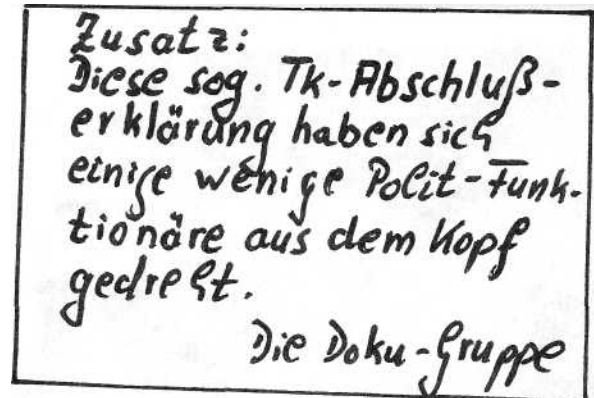 Zusatz:
Diese sog. Tk-Abschluß-
erklärung haben sich
einige wenige Polit-Funk-
tionäre aus dem Kopf
gedreht.
Die Doku-Gruppe